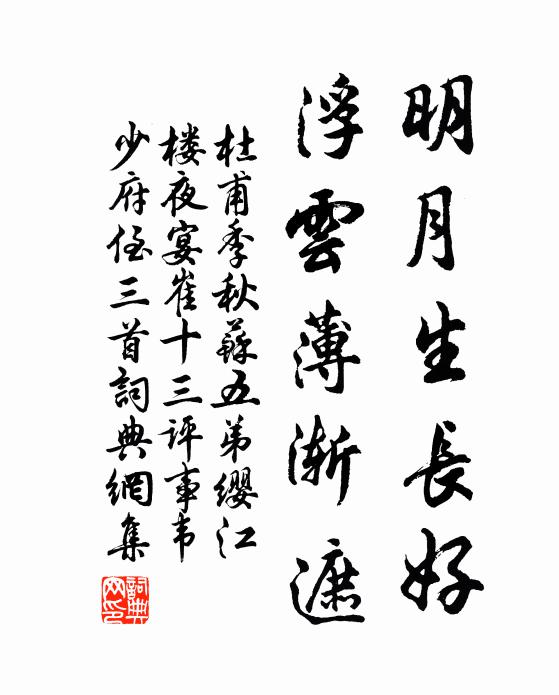 明月生長好
浮雲薄漸遮
杜甫季秋蘇五弟纓江
楼夜宴崔十三評事韦
少府侄三首詞典網集
詞典
网印